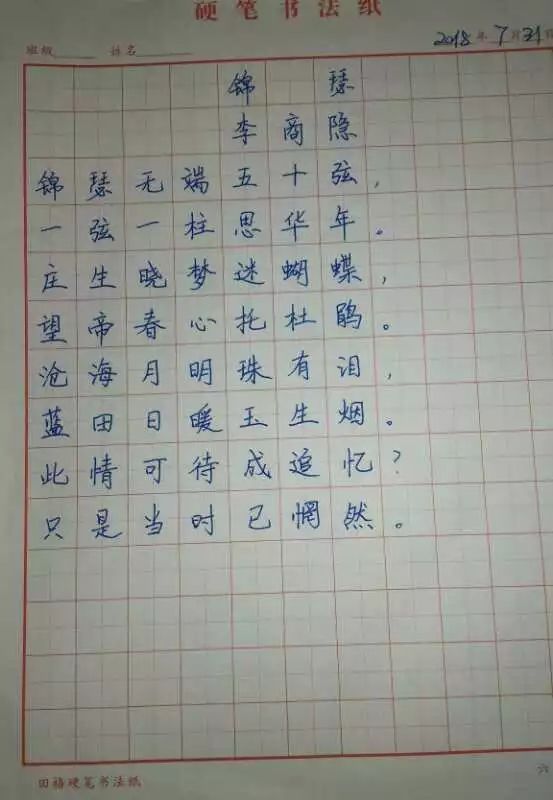 硬笔书法纸
班级 姓名 2018年7月31日
锦瑟
李商隐
锦瑟无端五十弦，
一弦一柱思华年。
庄生晓梦迷蝴蝶，
望帝春心托杜鹃。
沧海月明珠有泪，
蓝田日暖玉生烟。
此情可待成追忆？
只是当时已惘然。
田格硬笔书法纸 六